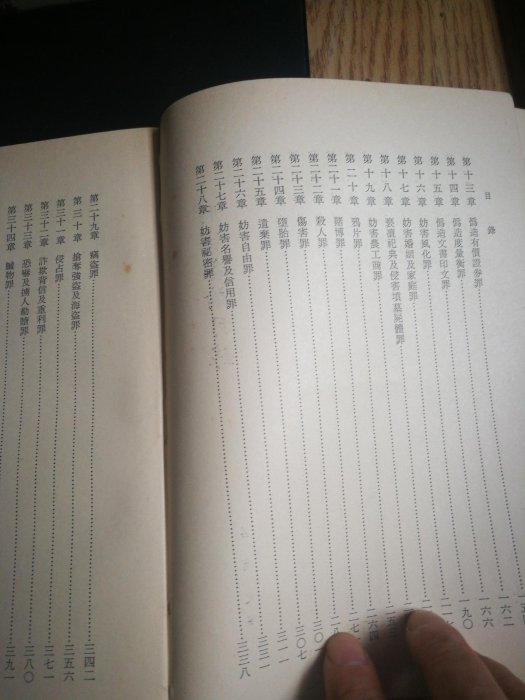 目錄
第十三章 偽造有價證券罪
第十四章 偽造度量衡罪 一六二
第十五章 偽造文書印文罪 一六六
第十六章 妨害風化罪 一九〇
第十七章 妨害婚姻及家庭罪
第十八章 褻瀆祀典及侵害墳墓屍體罪
第十九章 妨害農工商罪
第二十章 鴉片罪
第二十一章 賭博罪
第二十二章 殺人罪
第二十三章 傷害罪 三〇七
第二十四章 墮胎罪 三一一
第二十五章 遺棄罪 三二一
第二十六章 妨害自由罪
第二十七章 妨害名譽及信用罪
第二十八章 妨害祕密罪
第二十九章 竊盜罪 三四二
第三十章 搶奪強盜及海盜罪 三五六
第三十一章 侵占罪
第三十二章 詐欺背信及重利罪 三七一
第三十三章 恐嚇及擄人勒贖罪 三八〇
第三十四章 贓物罪 三九一